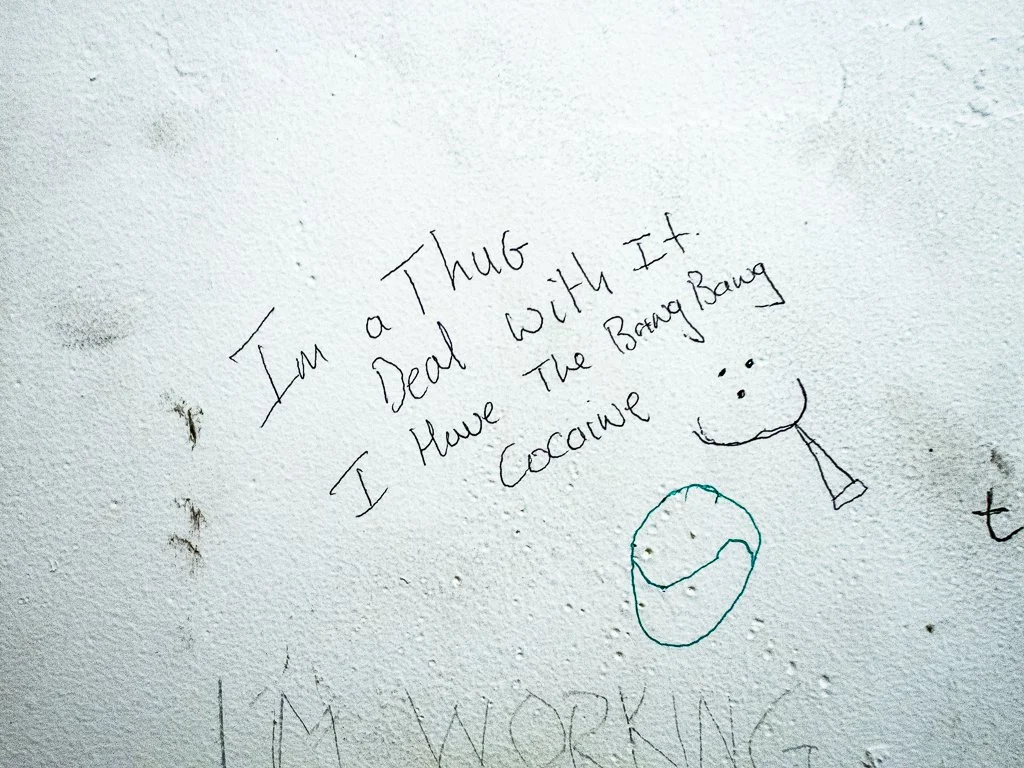 Im a Thug
Deal with It.
I Have The BangBang
Cocaine
t
I'M WORKING